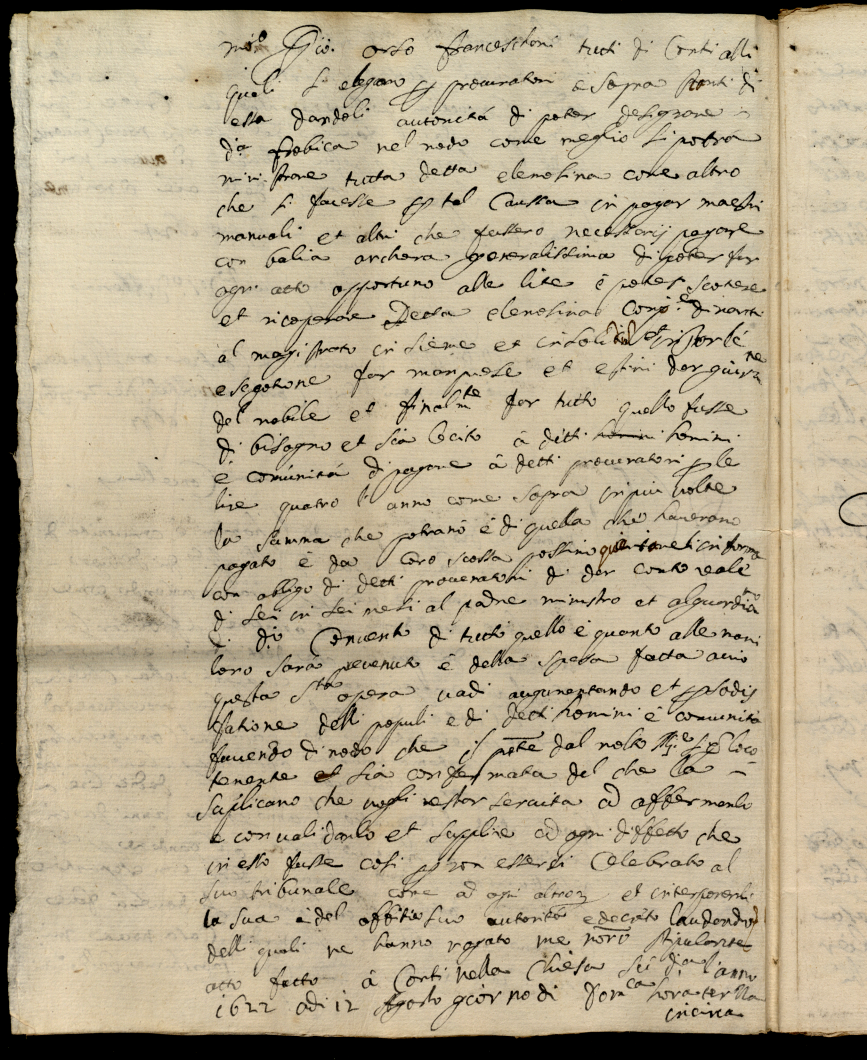 Gio. Orso franceschini tutti di Corti alli
quali si elegano per procuratori e sopra stanti di
essa dandoli autorità di poter designare
fabrica nel modo come meglio si potrà
ministrare tutta detta elemosina come altro
che si facesse per tal Caussa in pagar maestri
manuali et altri che fussero necessarij pagare
con balia anchora generalissima di poter far
ogni atto opportuno alle lite è poter scotere
et ricoperare Detta elemosina dinanti
al magistrato insieme et insolidum et
esegotione far et estimi
del nobile et finalmte far tutto quello fusse
di bisogno et sia lecito à detti homini
è comunità di pagare à detti procuratori le
lire quatro l'anno come sopra in più volte
la summa che potranò è di quella che haverano
pagato è da loro scossa possino quitare in forma
con obligo di detti procuratori di dar conto reale
di sei in sei mesi al padre ministro et al guardiano
di do Convento di tutto quello è quanto alle mani
loro sarà pervenuto è della spesa fatta acio
questa Sta opera vadi augumentando et per sodis
fatione delli populi e di detti homini è comunità
facendo di modo che il dal molto loco
tenente et sia confermata del che la
suplicano che vogli restar servita ad affermarlo
e convalidarlo et suplire ad ogni diffetto che
in esso fusse cosi per non essersi Celebrato al
suo tribunale come ad ogni altro et interponerli
la sua è del offitio suo autorità e decreto laudando
delli quali ne hanno rogato me noro
atto fatto à Corti nella Chiesa l'anno
1622 adi 12 Agosto giorno di Domca hora terza
incirca